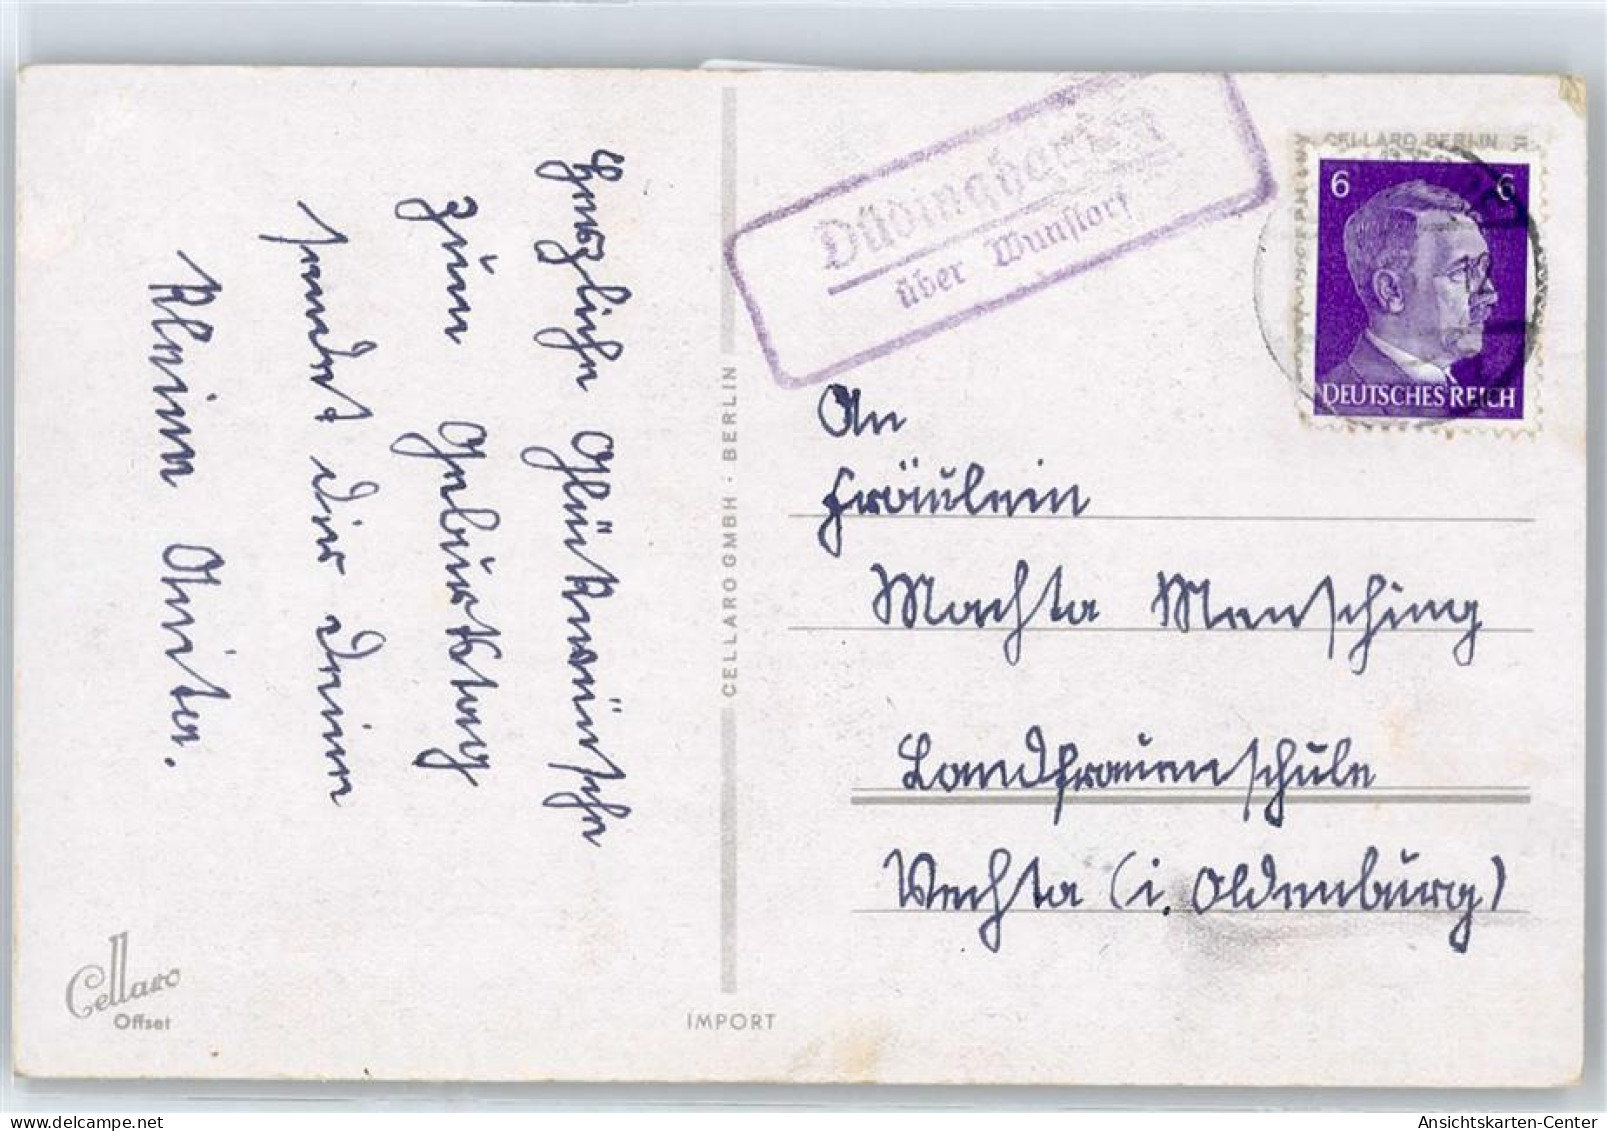 Herzliche Glückwünsche
zum Geburtstag
sendet dir deine
kleine Anita.
CELLARO GMBH · BERLIN
Cellaro
Offset
IMPORT
über Wunstorf
CELLARO BERLIN
6 6
DEUTSCHES REICH
An
Fräulein
Machta Mensching
Landfrauenschule
Vechta (i. Oldenburg)
Ansichtskarten-Center